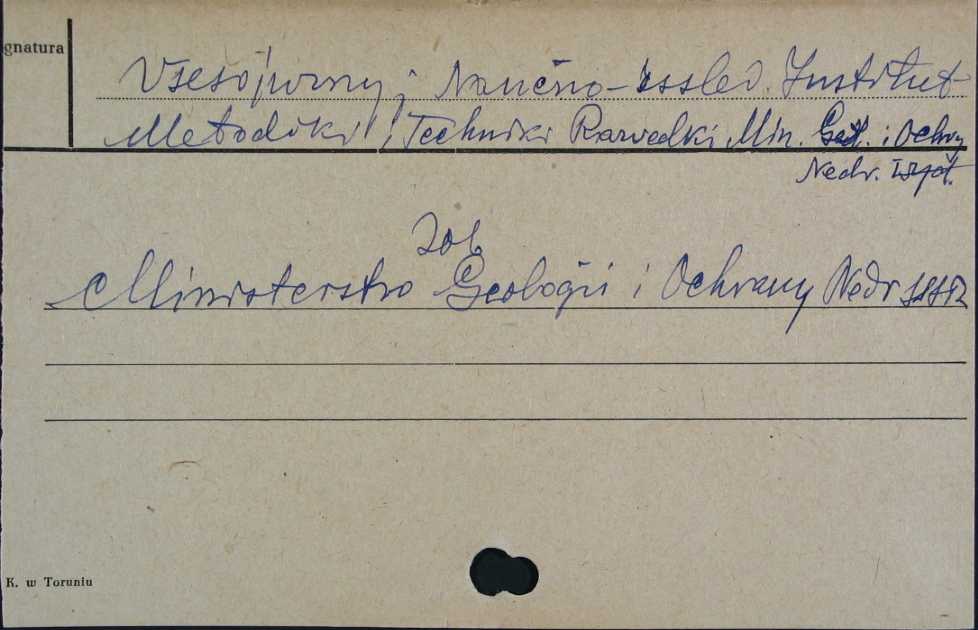 gnatura
Vsesojuznyj Naučno-Issled. Institut
Metodiki i Techniki Razvedki, Min. Geol. i Ochrany
Nedr.
Zob
Ministerstvo Geologii i Ochrany Nedr SSSR
K. w Toruniu